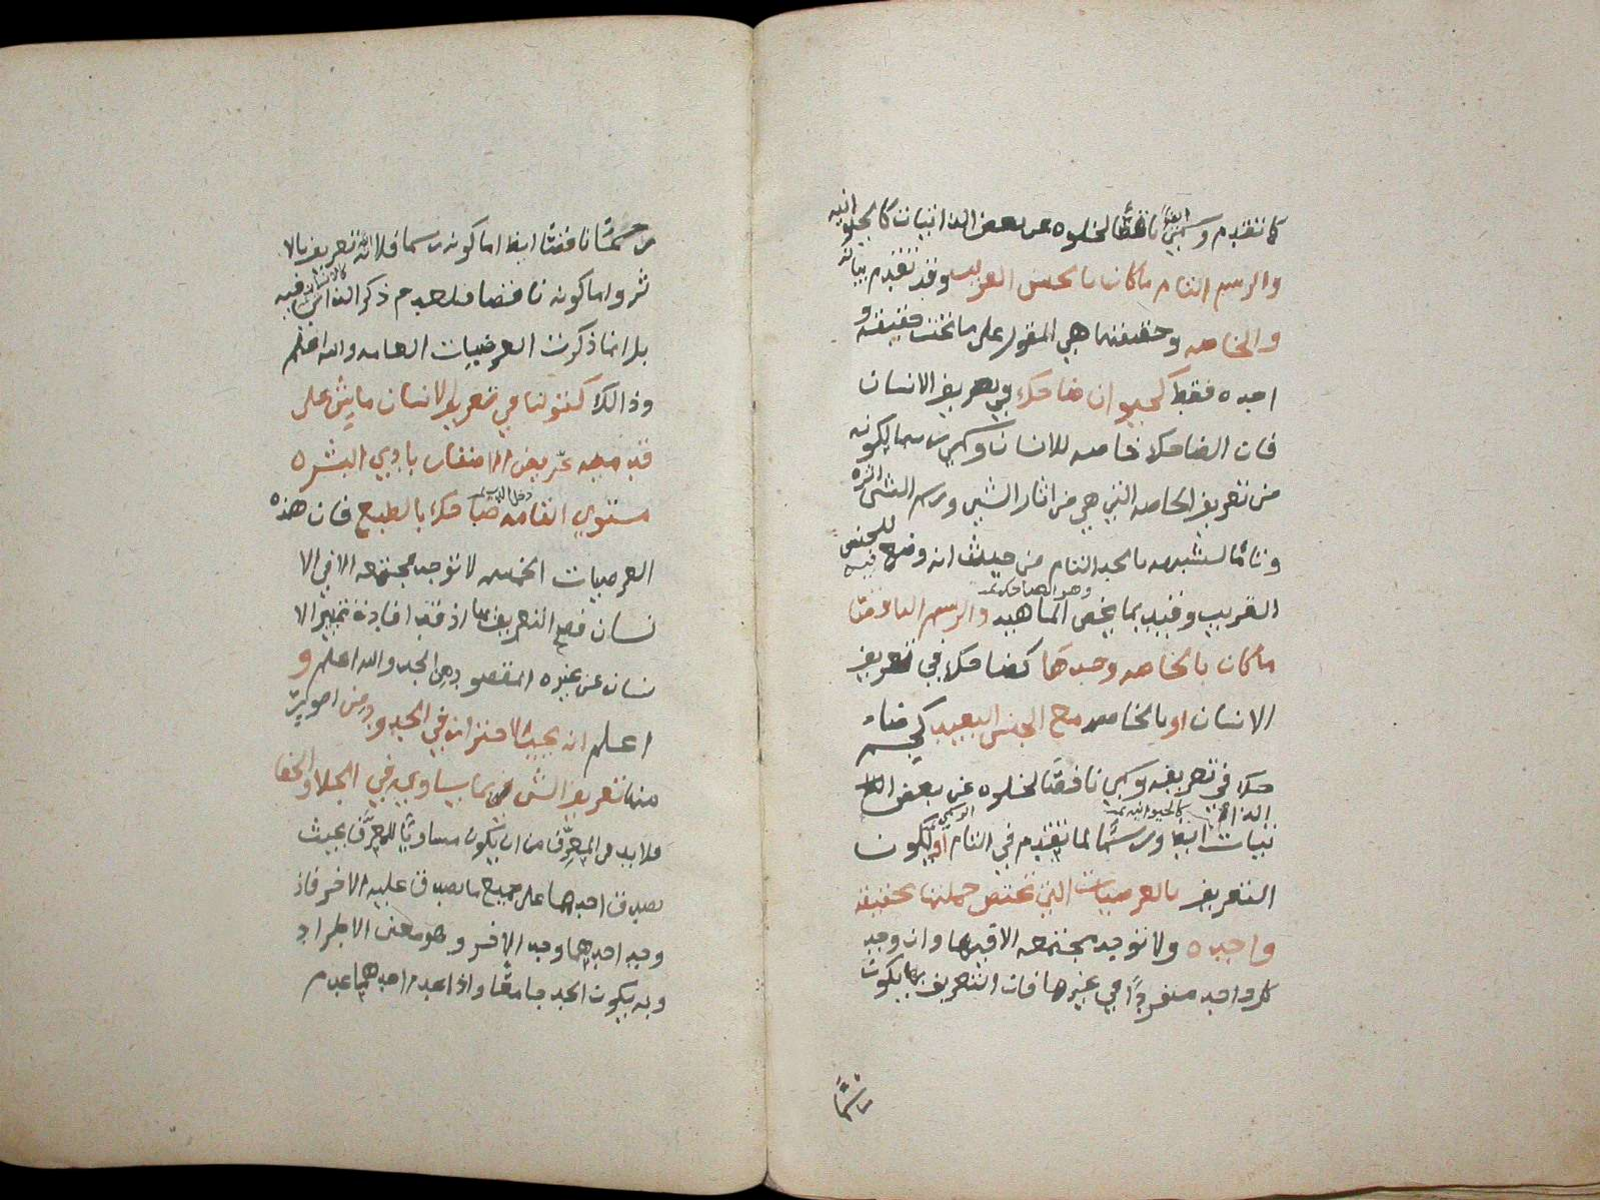 كما تقدم وسمي ايضا ناقصًا لخلوه عن بعض الذاتيات كالحيوانيه
والرسم التام ما كان بالجنس القريب وقد تقدم بيانه
والخاصه وحقيقتها هي المقول على ما تحت حقيقة و
احده فقط كحيوان ضاحك في تعريف الانسان
فان الضاحك خاصه للانسان وسمي رسما لكونه
من تعريف الخاصه التي هي من اثار الشي ورسم الشي اثره
وتامًا لشبهه بالحد التام من حيث انه وضع فيه الجنس
القريب وقيد بما يخص الماهيه وهو الضاحك والرسم الناقص
ما كان بالخاصه وحدها كضاحك في تعريف
الانسان او بالخاصه مع الجنس البعيد كجسم ضا
حك في تعريفه وسمي ناقصًا لخلوه عن بعض الذا
تيات ايضا كالحيوانيه ورسمًا لما تقدم في التام او لكون
التعريف بالعرضيات التي تختص جملتها بحقيقة
واحده ولا توجد مجتمعه الا فيها وان وجد
كل واحد منفردًا في غيرها فان التعريف بها يكون
رسمًا
رسمًا ناقصًا ايضا اما كونه رسما فلانه تعريف بالا
ثر واما كونه ناقصا فلعدم ذكر الذاتي فيه كالانسان
بل انما ذكرت العرضيات العامه والله اعلم
وذالك كقولنا في تعريف الانسان ماش على
قدميه عريض الاضفار بادي البشره
مستوي القامه ضاحك بالطبع فان هذه
العرضيات الخمس لا توجد مجتمعه الا في الا
نسان فصح التعريف بها اذ قد افادة تمييز الا
نسان عن غيره المقصود من الحد والله اعلم و
اعلم انه يجب الاحتراز في الحدود من امور
منها تعريف الشي بما يساويه في الجلا والخفا
فلا بد في المعرِّف من ان يكون مساويًا للمعرَّف بحيث
يصدق احدهما على جميع ما يصدق عليه الاخر فاذا
وجد احدهما وجد الاخر وهو معنى الاطراد
وبه يكون الحد جامعًا واذا عدم احدهما عدم